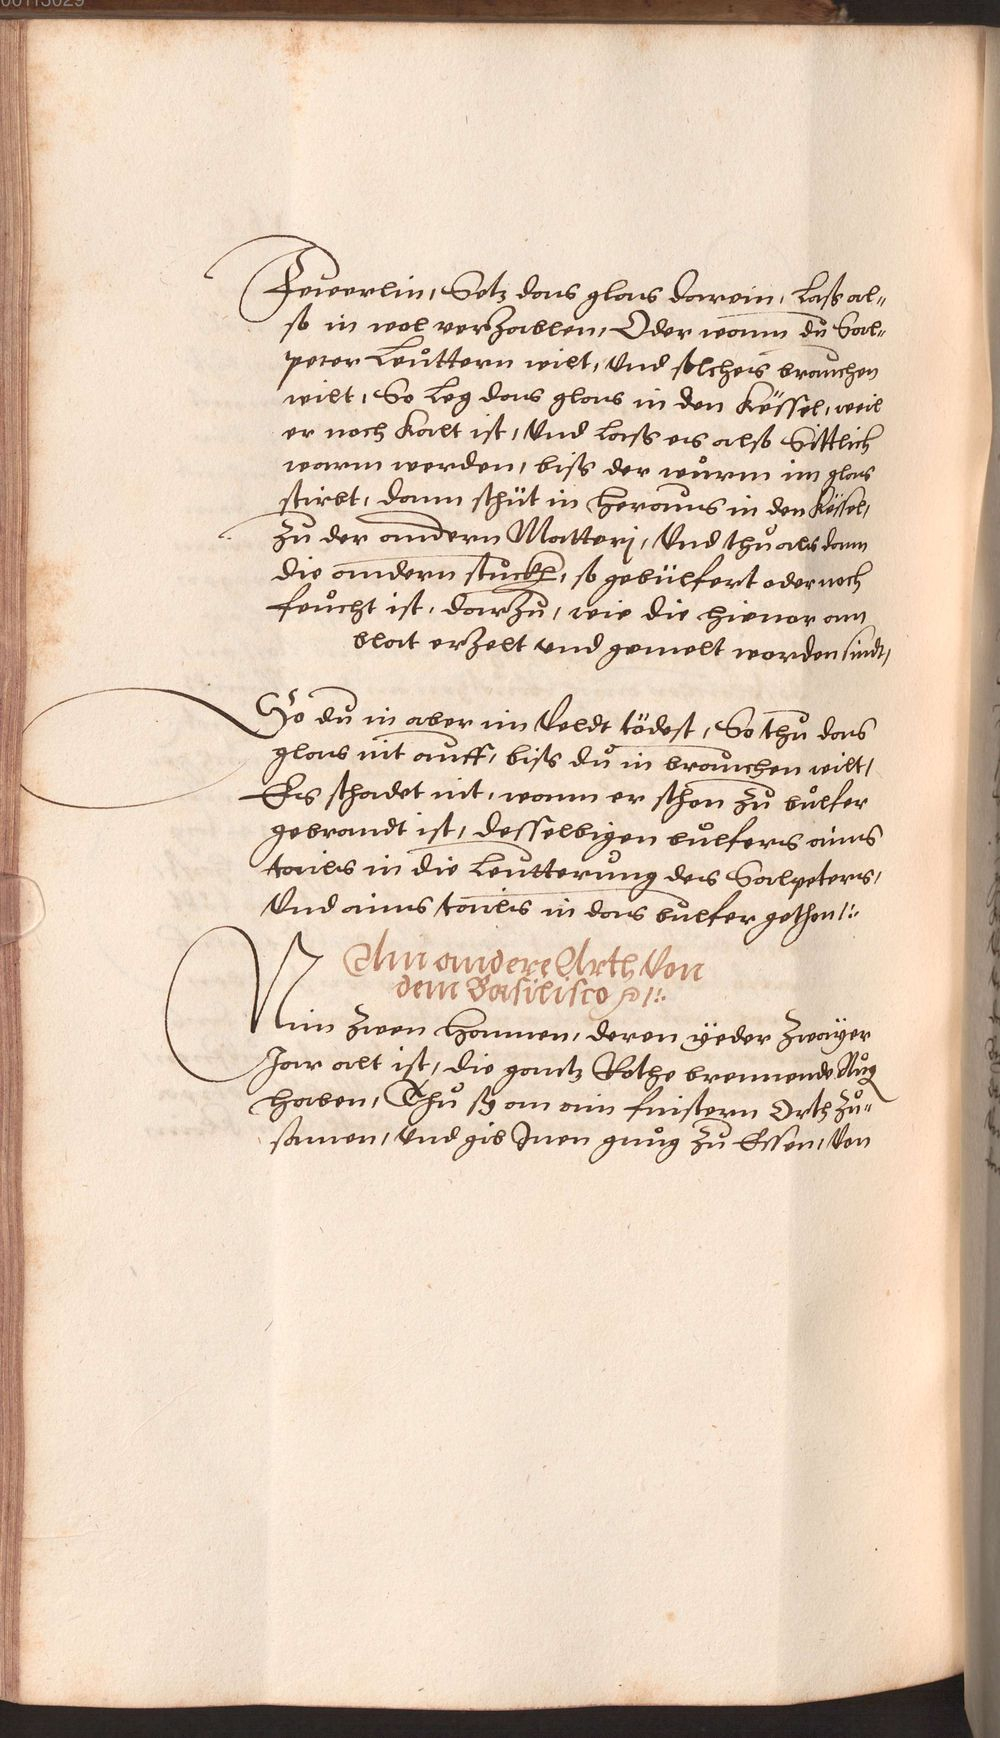 00113029
Feverlin, Setz das glas darein, Lass al„
so in wol verzablen, Oder wann du Sal„
peter Leuttern wilt, Und solches brauchen
wilt, So Leg das glas in den Kessel, weil
er noch Kalt ist, Und lass es also Sittlich
warm werden, biss der wurm im glas
stirbt, dann schüt in heraus in den Kessel,
Zu der andern Matterj, Und thu als dann
die andern stuckh, so gebülfert oder noch
feucht ist, darzu, wie die hievor am
blat erzelt und gemelt worden sindt,
So du in aber im Veldt tödest, So thu das
glas nit auff, biss du in brauchen wilt,
Es schadet nit, wann er schon zu bulfer
gebrandt ist, desselbigen bulfers ains
tails in die Leutterung des Salpeters,
Und ains tails in das bulfer gethon /:.
Ain andere Arth Von
dem Basilisco /:.
Nim zwen hannen, deren yeder zwayer
Jar alt ist, die gantz Rothe brennende Aug
haben, Thu sy an ain finstern Orth zu„
samen, Und gib Inen gnug zu Essen, Von